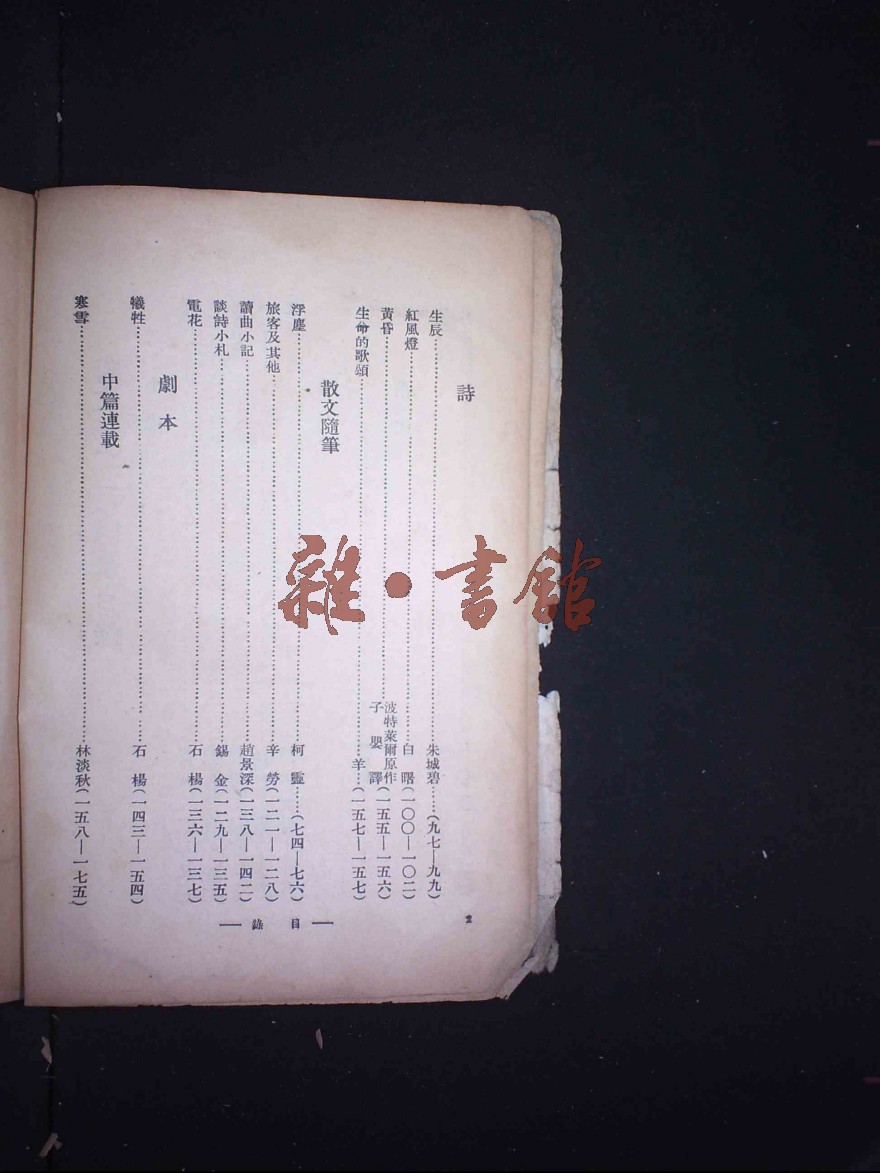 詩
生辰……朱城碧……(九七—九九)
紅風燈……白曙(一〇〇—一〇二)
黃昏……波特萊爾原作
子嬰譯(一五五—一五六)
生命的歌頌……羊…(一五七—一五七)
散文隨筆
浮塵……柯靈……(七四—七六)
旅客及其他……辛勞(一二一—一二八)
讀曲小記……趙景深(一三八—一四二)
談詩小札……錫金(一二九—一三五)
電花……石楊(一三六—一三七)
劇本
犧牲……石楊(一四三—一五四)
中篇連載
寒雪……林淡秋(一五八—一七五)
2
— 目錄 —
雜·書館